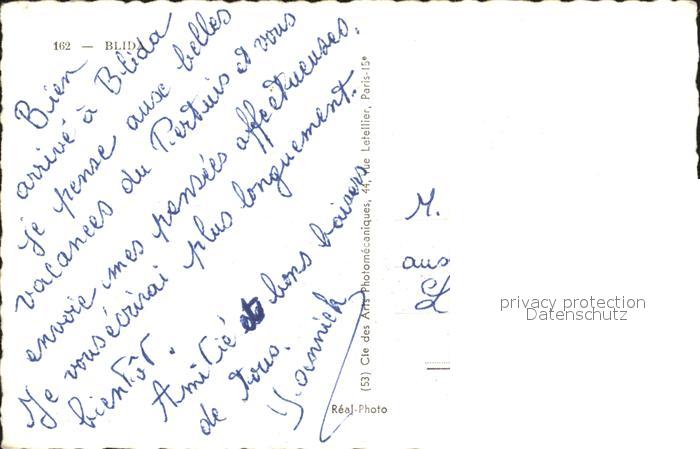 162 — BLIDA
Bien
arrivé à Blida
je pense aux belles
vacances du Pertuis et vous
envoie mes pensées affectueuses.
Je vous écrirai plus longuement
bientôt.
Amitié et bons baisers
de tous.
Yannick
(53) Cie des Arts Photomécaniques, 44, rue Letellier, Paris-15e
Réal-Photo
M.
privacy protection
Datenschutz